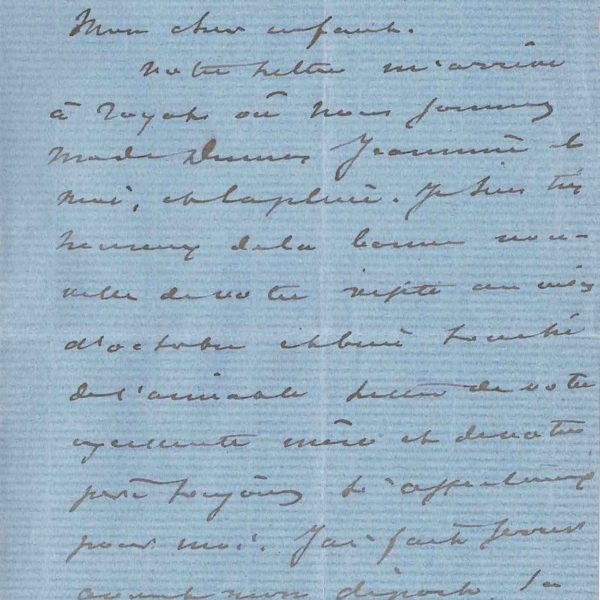 Mon cher enfant.
Votre lettre m'arrive
à Royat où nous sommes
Made Dumas Jeannine et
moi, et la pluie. Je suis très
heureux de la bonne nou-
velle de votre visite au mois
d'octobre et bien touché
de l'aimable lettre de votre
excellente mère et de votre
père toujours si affectueux
pour moi. J'ai fait
avant mon départ. la